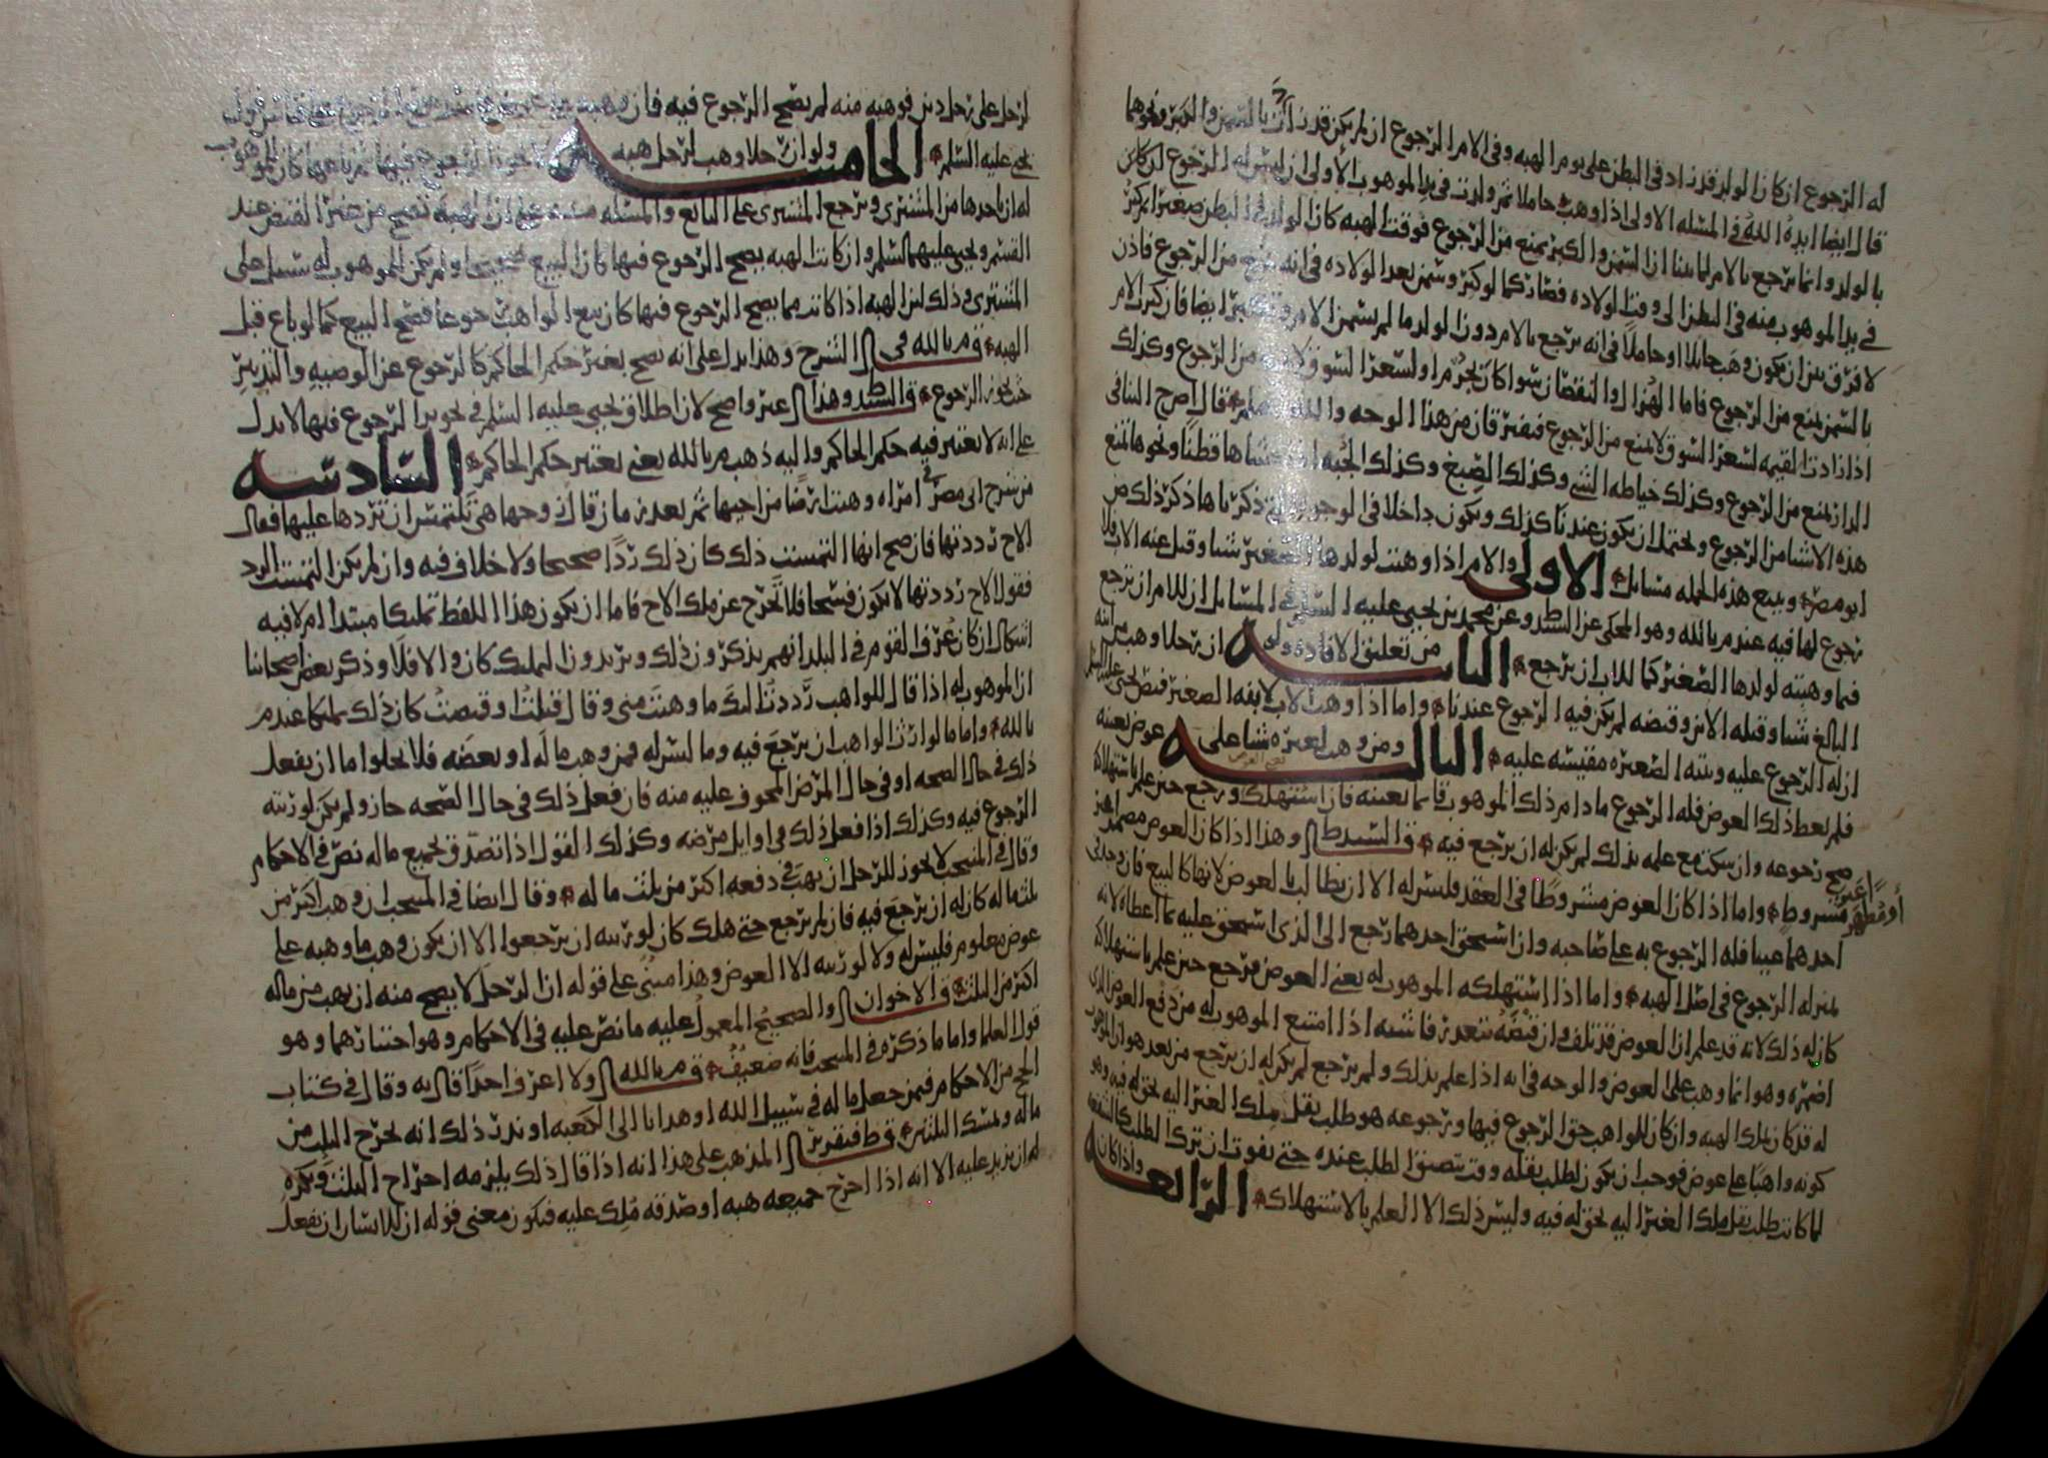 له الرجوع ان كان الولد قد زاد في البطن على يوم الهبه وفي الام الرجوع ان لم يكن قد زادت بالسمن والكبر ونحوهما
قال ايضا ايده الله في المسله الاولى اذا وهبت حاملا ثم ولدت في يد الموهوب الاولى ان ليس له الرجوع
بالولد وانما يرجع بالام لما بينا ان السمن والكبر يمنع من الرجوع فوقت الهبه كان الولد في البطن صغيرا
في يد الموهوب منه في البطن الى وقت الولاده فصار كما لو كبر وسمن بعد الولاده في انه يمنع من الرجوع فاذن
لا فرق بين ان يكون وهب حايلا او حاملا في انه يرجع بالام دون الولد ما لم يسمن الام وتكبر ايضا فان كبرت الام
بالسمن يمنع من الرجوع فاما الهزال والنقصان سوا كان بجرم او لسعر السوق لا يمنع من الرجوع وكذلك
اذا زادت القيمه لسعر السوق لا يمنع من الرجوع فيفترقان من هذا الوجه والله اعلم قال اصح الثاني
الراز يمنع من الرجوع وكذلك خياطه الثني وكذلك الصبغ وكذلك الجبه اذا حشاها قطنا ونحوها تمنع
هذه الاشيا من الرجوع ويحتمل ان يكون عندنا كذلك ويكون داخلا في الوجوه التي ذكرناها ذكر ذلك ض
ابو مضر وبيع هذه الجمله مسايل الاولى والام اذا وهبت لولدها الصغير شيا وقبل عنه الاب فلا
رجوع لها فيه عند م بالله وهو المحكي عن السيد ط وعن محمد بن يحيى عليه السلم في المسايل ان للام ان ترجع
فيما وهبته لولدها الصغير كما للاب ان يرجع الثانيه من تعليق الافاده ولو ان رجلا وهب من ابنه
البالغ شيا وقبله الابن وقبضه لم يكن فيه الرجوع عندنا واما اذا وهب الاب لابنه الصغير فنص يحيى عليه السلم
ان له الرجوع عليه وبنته الصغيره مقيسه عليه الثالثه ومن وهب لغيره شيا على عوض بعينه
فلم يعط ذلك العوض فله الرجوع ما دام ذلك الموهوب قايما بعينه فان استهلك ورجع حين علم باستهلاكه
صح رجوعه وان سكت مع علمه بذلك لم يكن له ان يرجع فيه قال السيد ط وهذا اذا كان العوض مضمرا غير
او مظهر غير مشروط واما اذا كان العوض مشروطا في العقد فليس له الا ان يطالب بالعوض لانها كالبيع فان وجد في
احدهما عيبا فله الرجوع به على صاحبه وان استحق احدهما رجع الى الذي استحق عليه بما اعطاه لانه
بمنزله الرجوع في اصل الهبه واما اذا استهلكه الموهوب له يعني العوض فرجع حين علم باستهلاكه
كان له ذلك لانه قد علم ان العوض قد تلف وان قبضه تعذر فاشبه اذا امتنع الموهوب له من دفع العوض الذي
اضمره وهو انما وهب على العوض والوجه في انه اذا علم بذلك ولم يرجع لم يكن له ان يرجع من بعد هو ان الموهوب
له قد كان ملك الهبه وان كان للواهب حق الرجوع فيها ورجوعه هو طلب نقل ملك الغير اليه لحق له فيه وهو
كونه واهبا على عوض فوجب ان يكون لطلب نقله وقت يتضيق الطلب عنده حتى يفوت ان ترك الطلب كالشفعه
لما كانت طلب نقل ملك الغير اليه لحق له فيه وليس ذلك الا العلم بالاستهلاك الرابعه واذا كان
لرجل على رجل دين فوهبه منه لم يصح الرجوع فيه فان وهبه
يحيى عليه السلم الخامسه ولو ان رجلا وهب لرجل هبه الرجوع فيها ثم باعها كان للموهوب
له ان ياخذها من المشتري ويرجع المشتري على البايع والمسله مبنيه على ان الهبه تصح من غير القبض عند
القسم ويحيى عليهما السلم وان كانت الهبه يصح الرجوع فيها كان البيع صحيحا ولم يكن للموهوب له سبيل على
المشتري وذلك لان الهبه اذا كانت مما يصح الرجوع فيها كان بيع الواهب رجوعا فصح البيع كما لو باع قبل
الهبه قال م بالله في الشرح وهذا يدل على انه يصح بغير حكم الحاكم كالرجوع عن الوصيه والتدبير
حيث يجوز الرجوع قال السيد وهذا غير واضح لان اطلاق يحيى عليه السلم في تجويز الرجوع فيها لا يدل
على انه لا يعتبر فيه حكم الحاكم واليه ذهب م بالله يعني يعتبر حكم الحاكم السادسه
من شرح ابي مضر في امراه وهبت ارضا من اخيها ثم بعد زمان قال زوجها هي تلتمس ان تردها عليها فقال
الاخ رددتها فان صح انها التمست ذلك كان ذلك ردا صحيحا ولا خلاف فيه وان لم يكن التمست الرد
فقول الاخ رددتها لا يكون فسخا فلا تخرج عن ملك الاخ فاما ان يكون هذا اللفظ تمليكا مبتدا ام لا فيه
اشكال ان كان عرف القوم في البلد انهم يذكرون ذلك ويريدون التمليك كان والا فلا وذكر بعض اصحابنا
ان الموهوب له اذا قال للواهب رددت اليك ما وهبت مني وقال قبلت او قبضت كان ذلك تمليكا عند م
بالله واما ما لوارث الواهب ان يرجع فيه وما ليس له فمن وهب ماله او بعضه فلا يخلوا اما ان يفعل
ذلك في حال الصحه او في حال المرض المخوف عليه منه فان فعل ذلك في حال الصحه جاز ولم يكن لورثته
الرجوع فيه وكذلك اذا فعل ذلك في اوايل مرضه وكذلك القول اذا تصدق بجميع ماله نص في الاحكام
وقال في المنتخب لا يجوز للرجل ان يهب في دفعه اكثر من ثلث ماله وقال ايضا في المنتخب ان وهب اكثر من
ثلث ماله كان له ان يرجع فيه فان لم يرجع حتى هلك كان لورثته ان يرجعوا الا ان يكون وهب ما وهبه على
عوض معلوم فليس له ولا لورثته الا العوض وهذا مبني على قوله ان الرجل لا يصح منه ان يهب من ماله
اكثر من الثلث قال الاخوان والصحيح المعمول عليه ما نص عليه في الاحكام وهو اختيارهما وهو
قول العلما واما ما ذكره في المنتخب فانه ضعيف قال م بالله ولا اعرف احدا قال به وقال في كتاب
الحج من الاحكام فيمن جعل ماله في سبيل الله او هدايا الى الكعبه او نذر ذلك انه يخرج الثلث من
ماله ويمسك الثلثين قال ط فتقرير المذهب على هذا انه اذا قال ذلك يلزمه اخراج الثلث ويكره
له ان يزيد عليه الا انه اذا اخرج جميعه هبه او صدقه ملك عليه فيكون معنى قوله ان للانسان ان يفعل